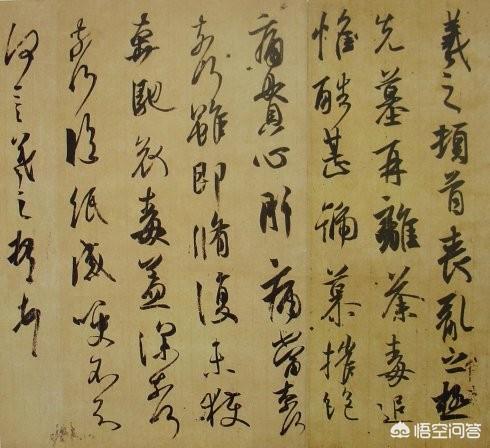 羲之頓首喪亂之極
先墓再離荼毒追
惟酷甚號慕摧絕
痛貫心肝痛當奈何
奈何雖即脩復未獲
奔馳哀毒益深奈何
奈何臨紙感哽不知
何言羲之頓首頓首
悟空问答